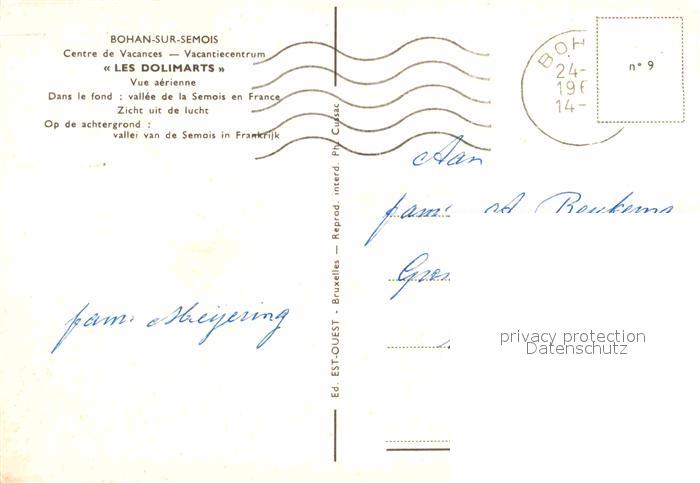 BOHAN-SUR-SEMOIS
Centre de Vacances — Vacantiecentrum
« LES DOLIMARTS »
Vue aérienne
Dans le fond : vallée de la Semois en France
Zicht uit de lucht
Op de achtergrond :
vallei van de Semois in Frankrijk
fam. Meijering
Ed. EST-OUEST - Bruxelles — Reprod. interd. Ph. Cussac
BOH
24-
196
14-
n° 9
Aan
fam. A Beukema
privacy protection
Datenschutz